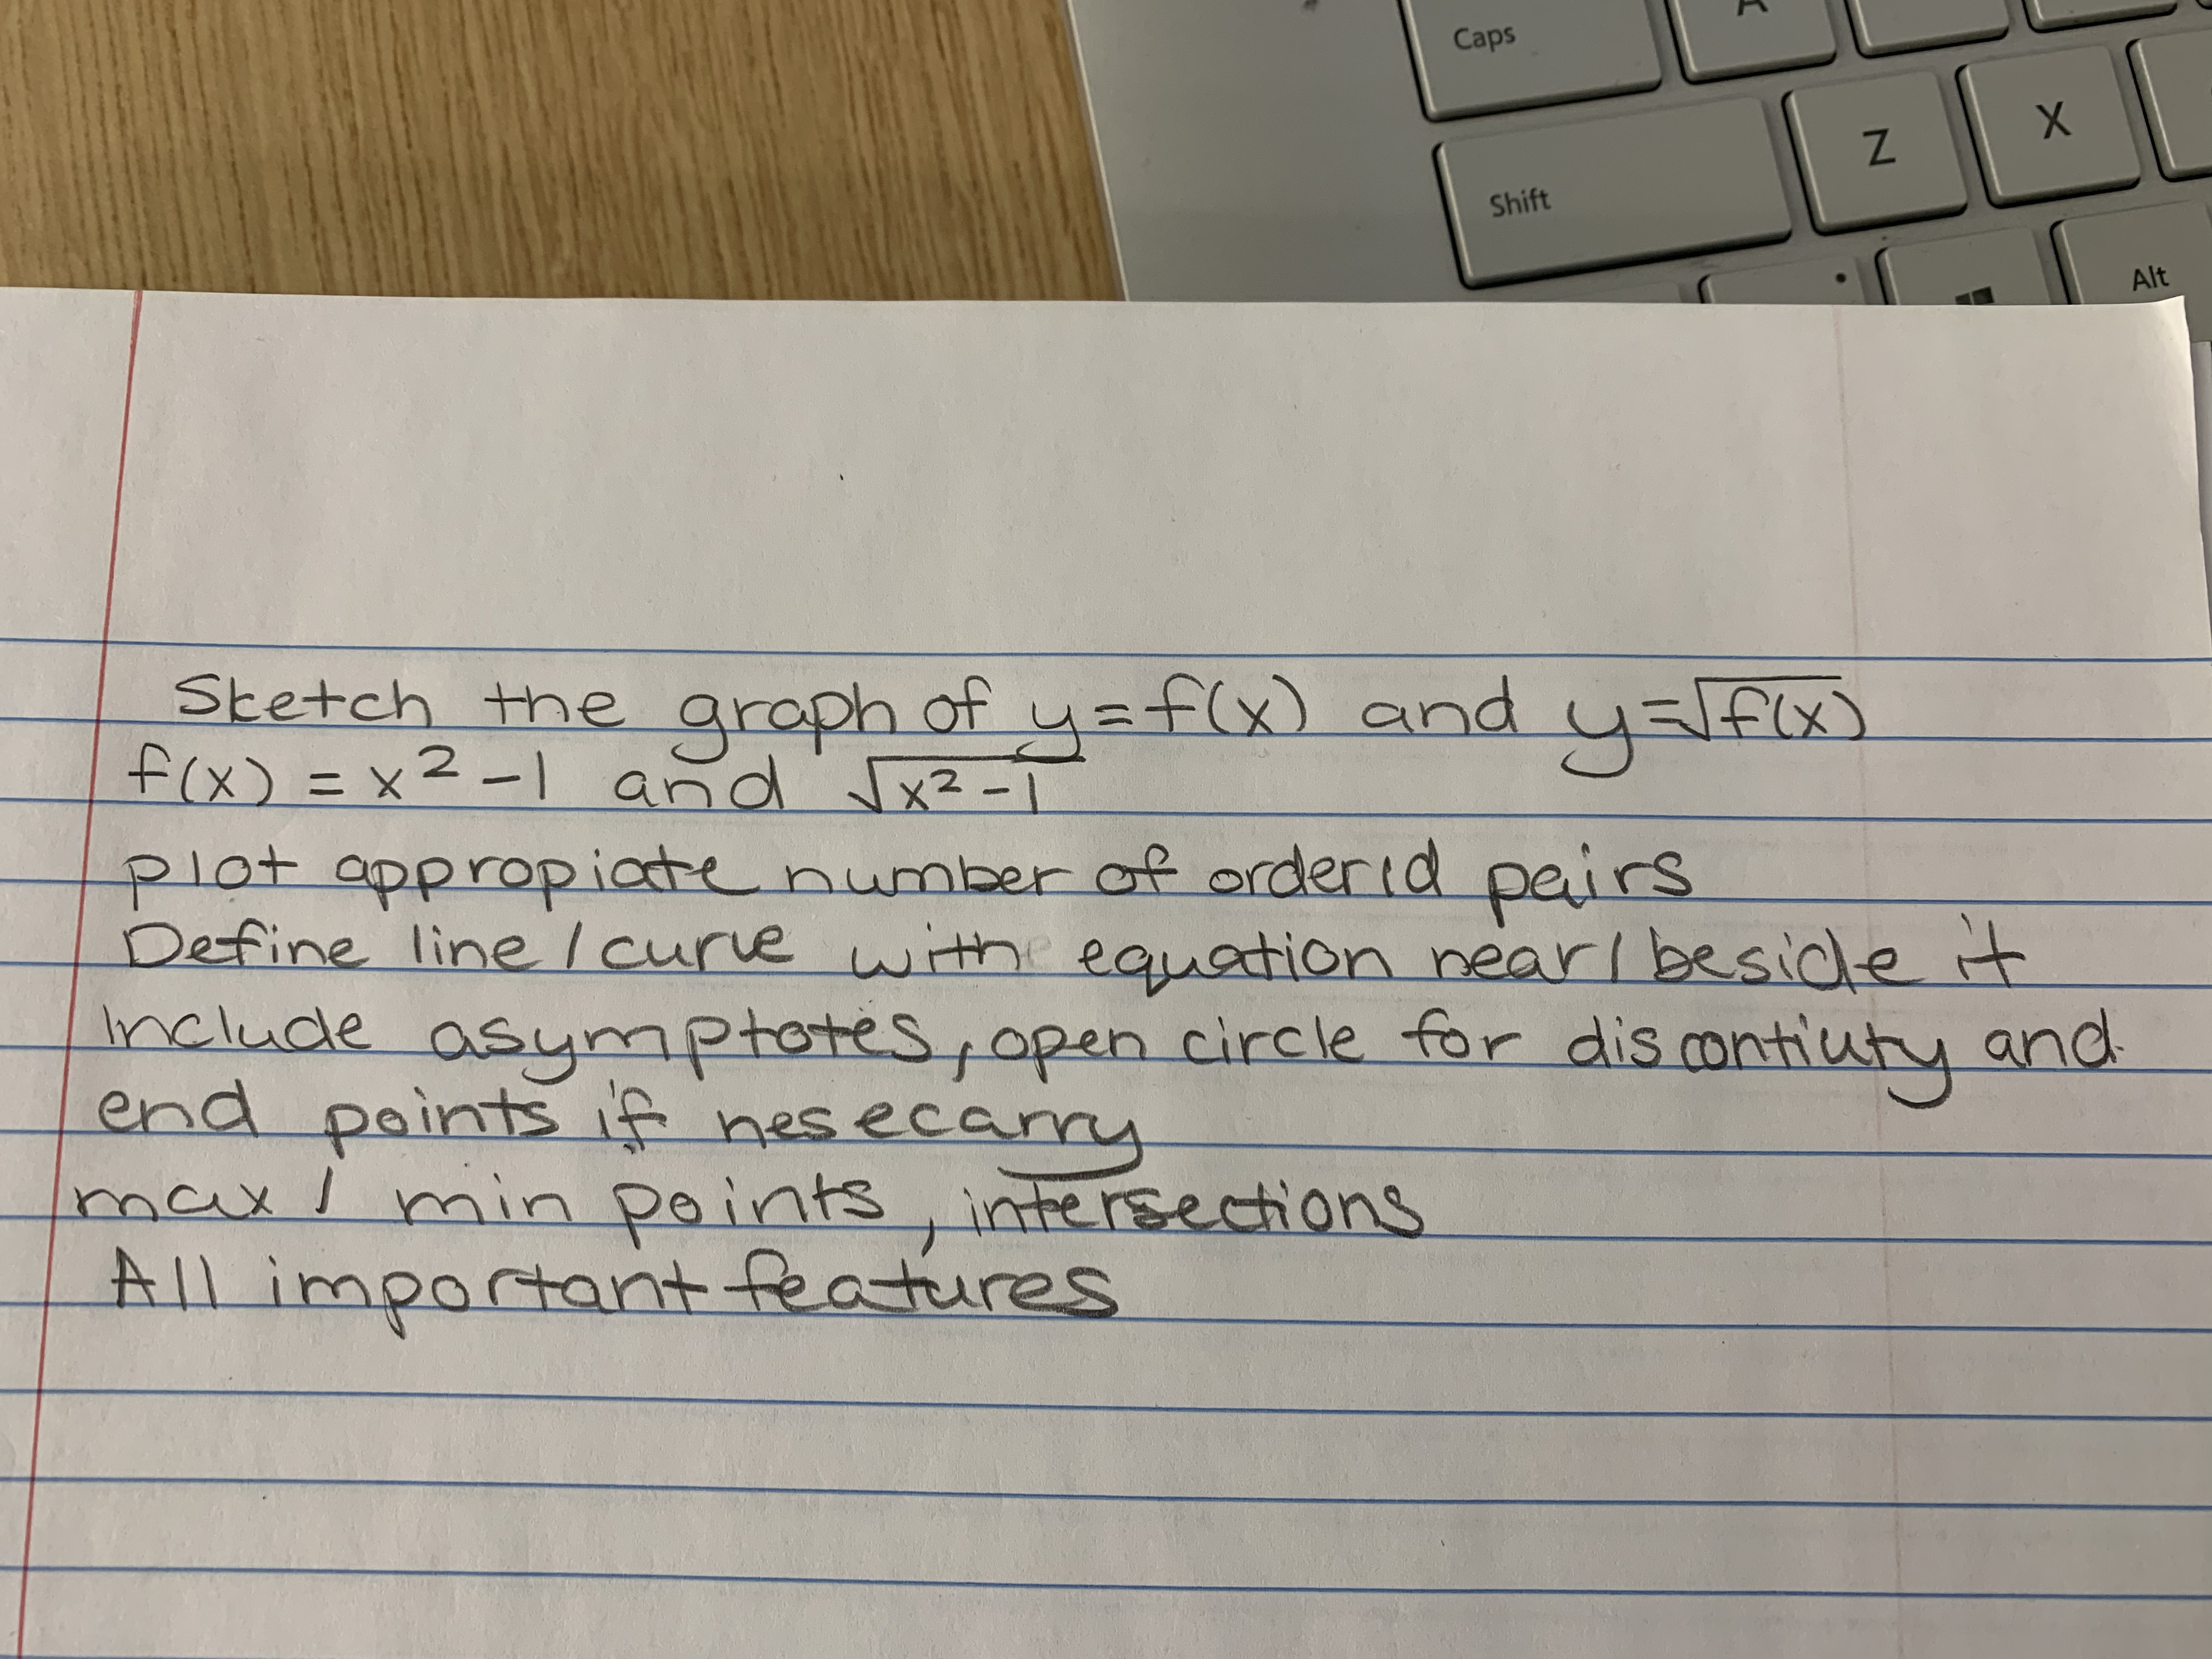 Caps
A
Shift
Z
X
Alt
Sketch the graph of y=f(x) and y=√f(x)
f(x) = x² -1 and √x² -1
plot appropiate number of orderid pairs
Define line / curve with equation near / beside it
Include asymptotes, open circle for discontiuty and
end points if nesecarry
max / min points, intersections
All important features